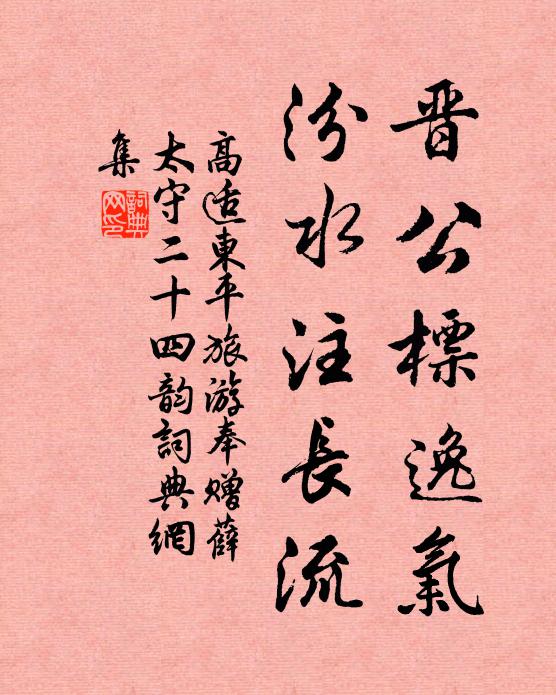 晋公標逸氣
汾水注長流
高适東平旅游奉贈薛
太守二十四韵詞典網
集
詞典网印